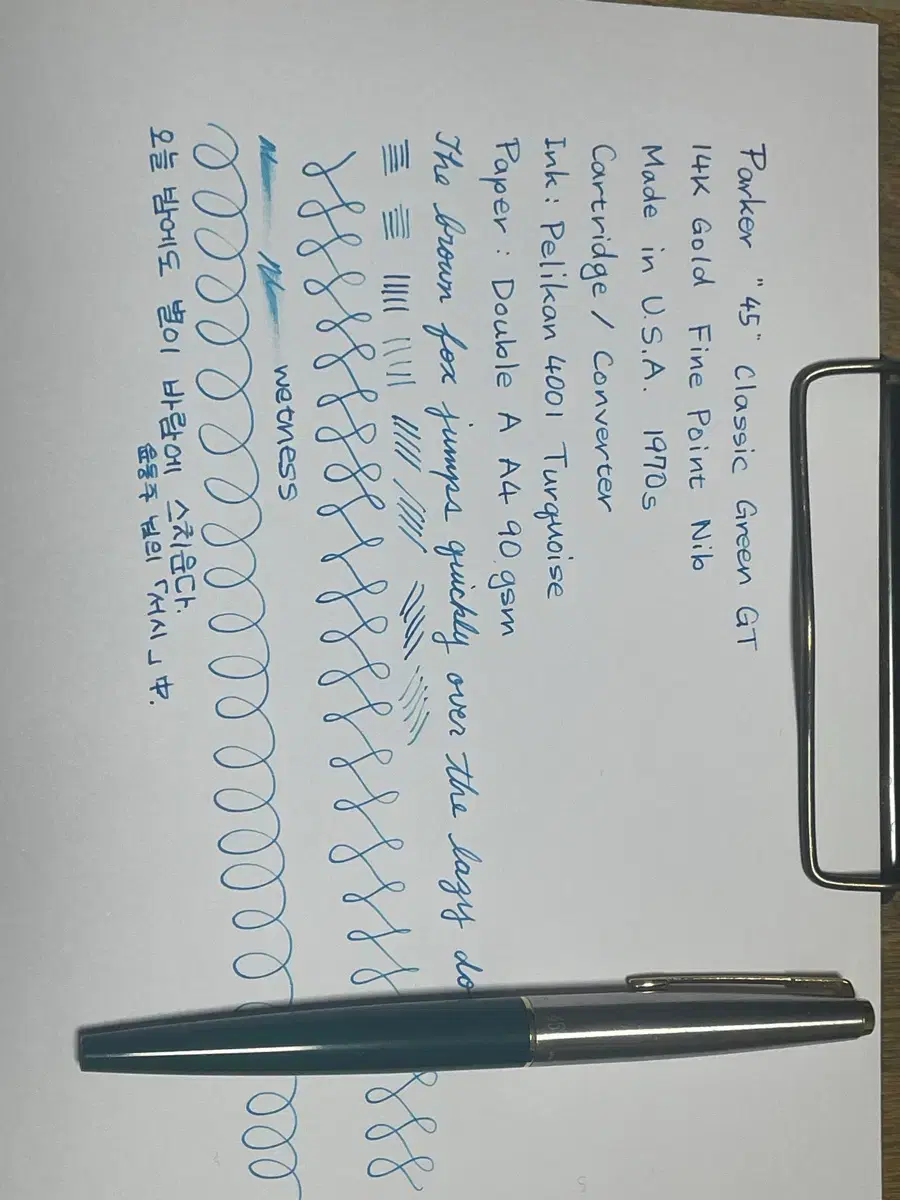 Parker "45" Classic Green GT
14K Gold Fine Point Nib
Made in U.S.A. 1970s
Cartridge / Converter
Ink : Pelikan 4001 Turquoise
Paper : Double A A4 90.gsm
The brown fox jumps quickly over the lazy do
wetness
오늘 밤에도 별이 바람에 스치운다.
윤동주 님의 「서시」 中.
45